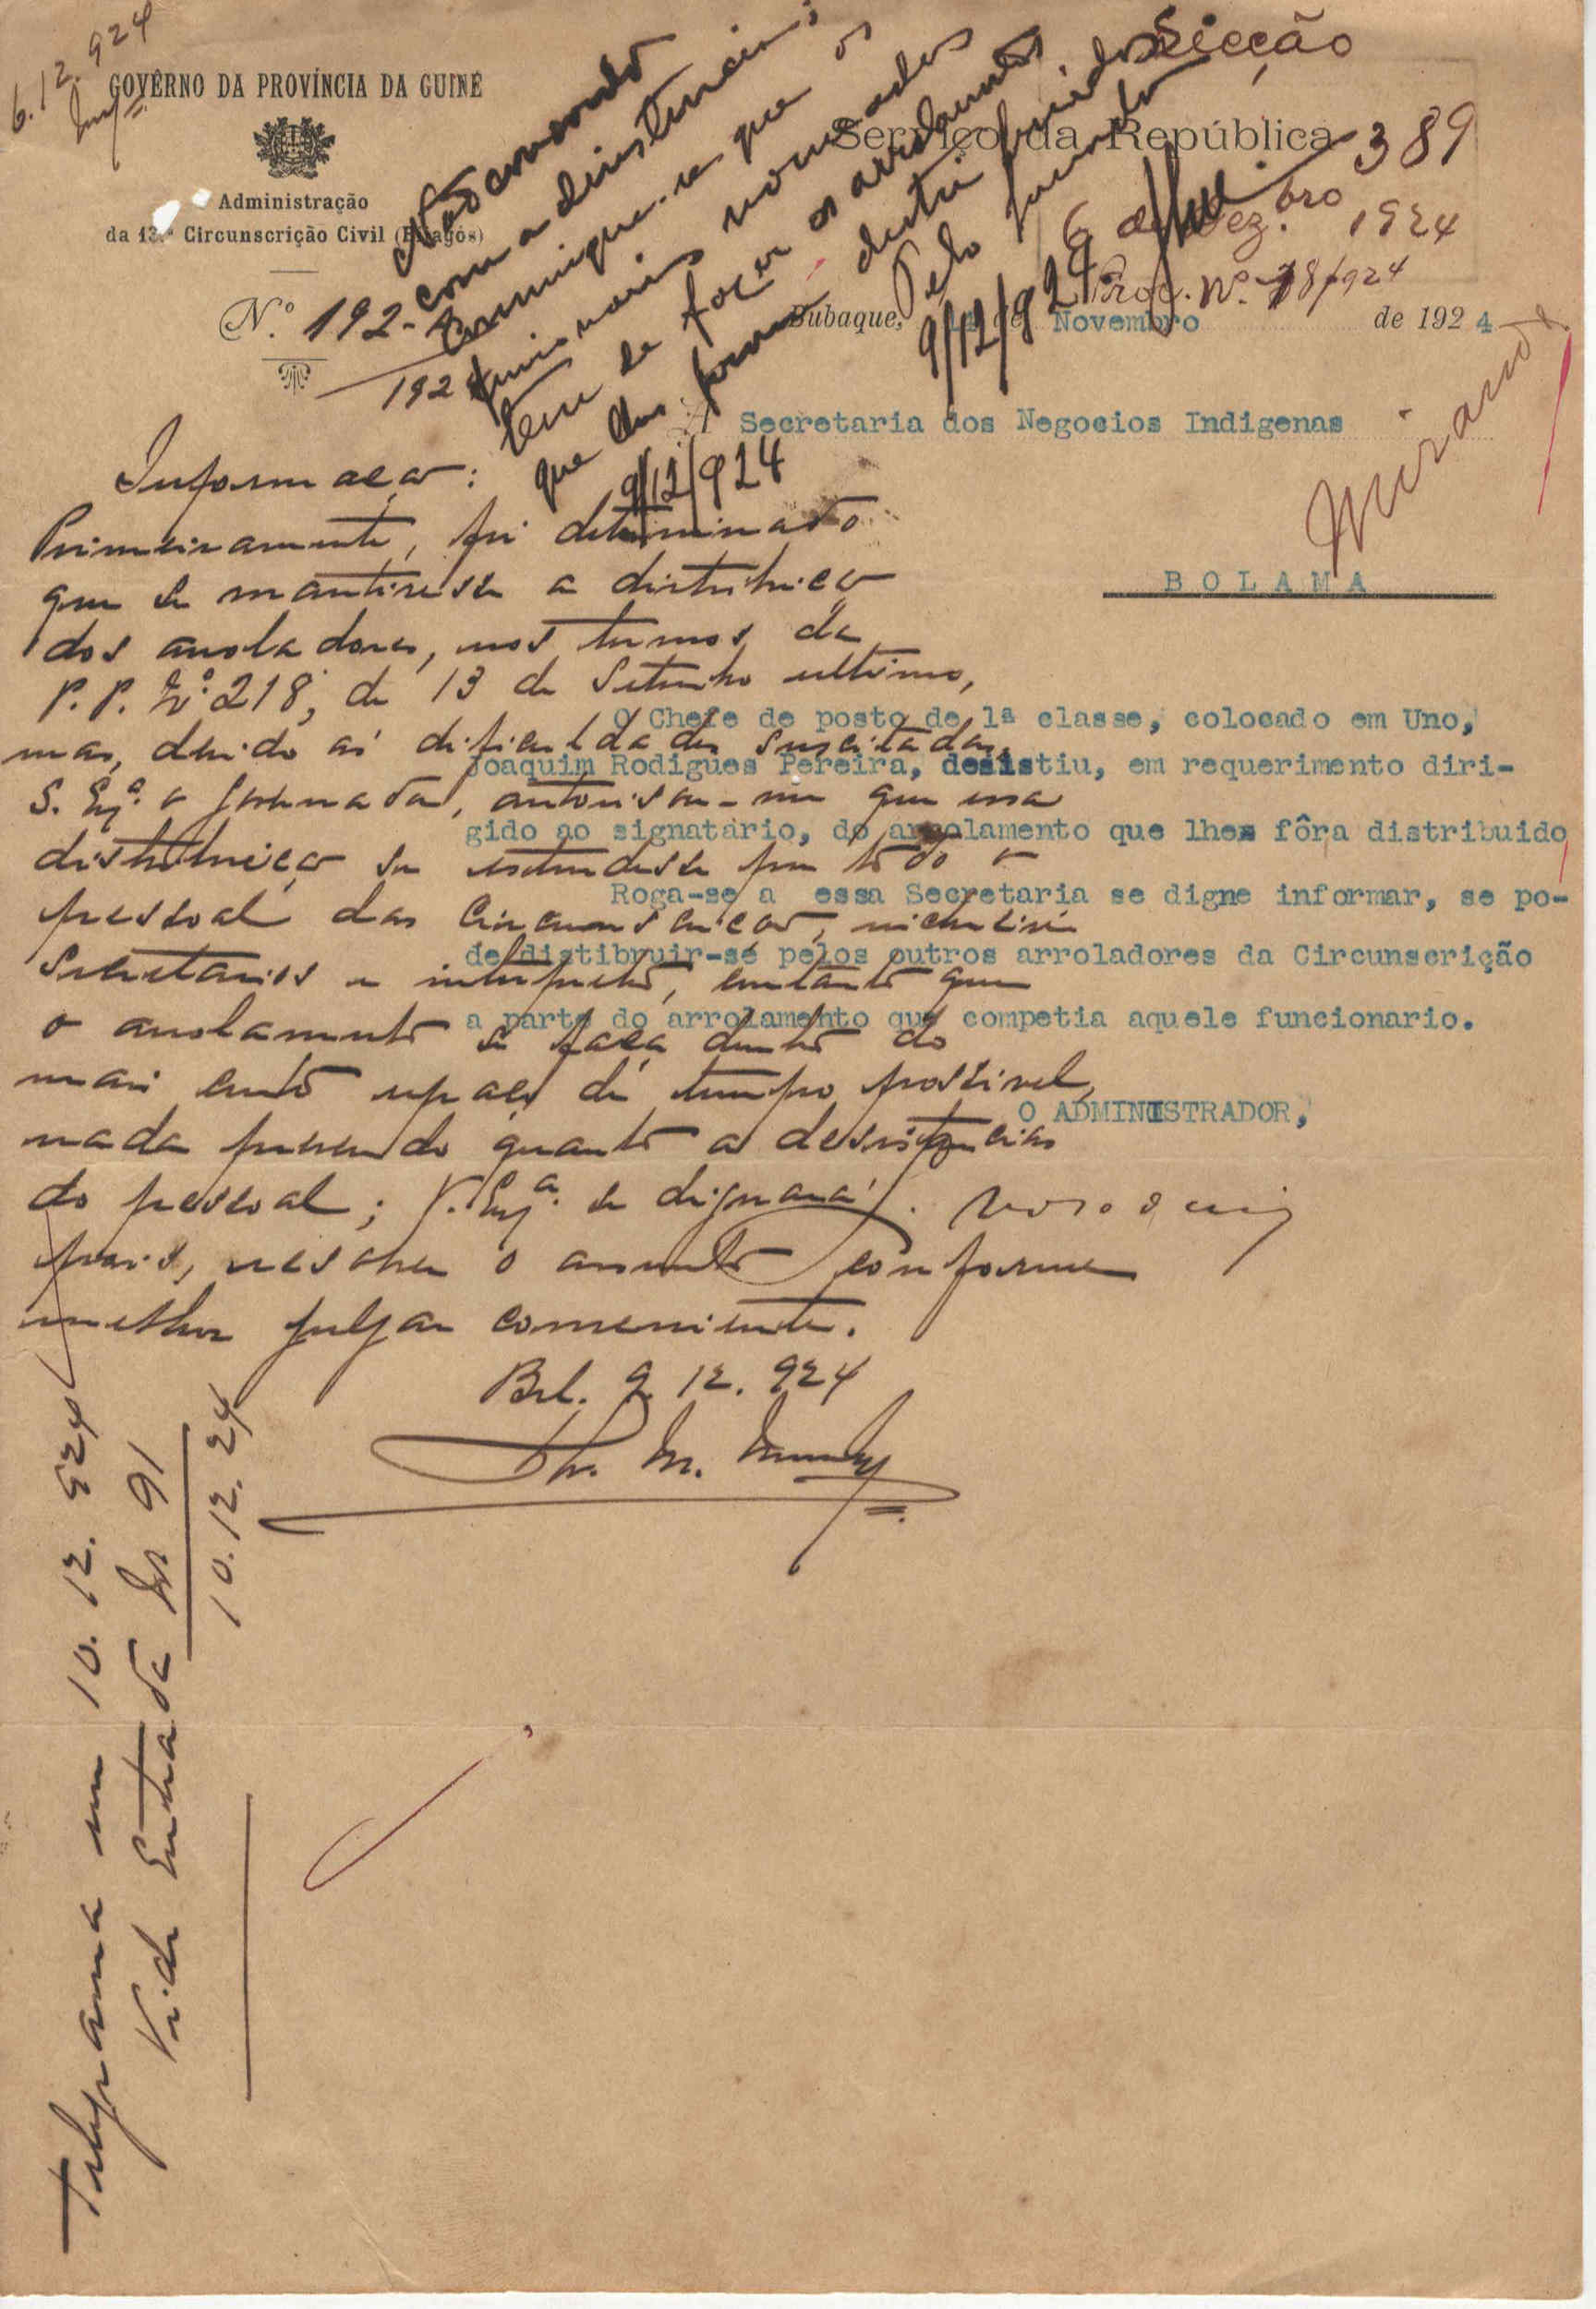 6.12.924
GOVÊRNO DA PROVÍNCIA DA GUINÉ
Administração
da 13.ª Circunscrição Civil (Bijagós)
N.º 192-
1924
Secção
Serviço da República
389
6 de Dez.bro 1924
Proc. Nº. 78/924
Bubaque, de Novembro de 1924
Não concordo
com a desistencia;
Comunique-se que os
funcionarios nomeados
tem de fazer os arrolamentos
que lhes foram distribuidos.
9/12/924
Pelo
9/12/924
A Secretaria dos Negocios Indigenas
Miranda
BOLAMA
O Chefe de posto de 1ª classe, colocado em Uno,
Joaquim Rodigues Pereira, desistiu, em requerimento diri-
gido ao signatário, do arrolamento que lhes fôra distribuido
Roga-se a essa Secretaria se digne informar, se po-
de distibruir-se pelos outros arroladores da Circunscrição
a parte do arrolamento que competia aquele funcionario.
O ADMINISTRADOR,
Informação:
Primeiramente, foi determinado
que se mantivesse a distribuição
dos arroladores, nos termos da
P. P. Nº 218, de 13 de Setembro ultimo,
mas, devido ás dificuldades suscitadas,
S. Exª. o Governador, autorisou-me que essa
distribuição se estendesse por todo o
pessoal das Circunscrições, inclusivé
Secretarios e interpretes, contanto que
o arrolamento se faça dentro do
mais curto espaço de tempo possivel,
nada prevendo quanto a desistencias
do pessoal; V. Exª. se dignará,
pois, resolver o assunto conforme
melhor julgar conveniente.
Bol. 9.12.924
Telegrama em 10.12.924
Vide Entrada Nº 91
10.12.24